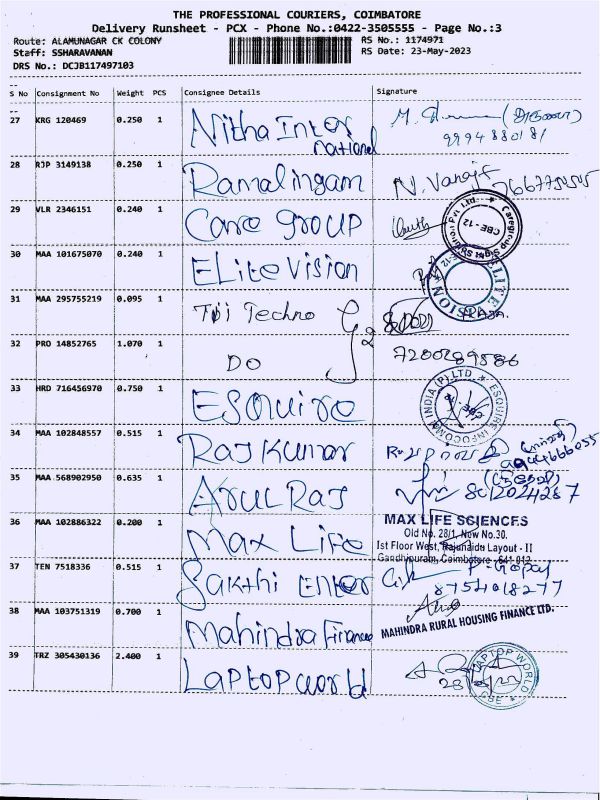 THE PROFESSIONAL COURIERS, COIMBATORE
Delivery Runsheet - PCX - Phone No.:0422-3505555 - Page No.:3
Route: ALAMUNAGAR CK COLONY RS No.: 1174971
Staff: SSHARAVANAN RS Date: 23-May-2023
DRS No.: DCJB117497103
S No Consignment No Weight PCS Consignee Details Signature
27 KRG 120469 0.250 1 Nitha Inter national
28 RJP 3149138 0.250 1 Ramalingam
29 VLR 2346151 0.240 1 Care group
CBE - 12
30 MAA 101675070 0.240 1 ELite Vision
31 MAA 295755219 0.095 1 Tji Techno
32 PRO 14852765 1.070 1 DO
33 HRD 716456970 0.750 1 Esquire
34 MAA 102848557 0.515 1 Raj Kumar
35 MAA 568902950 0.635 1 Arul Raj
36 MAA 102886322 0.200 1 Max Life
MAX LIFE SCIENCES
Old No. 28/1, New No.30.
Ist Floor West, Rajunaidu Layout - II
Gandhipuram, Coimbatore - 641 012
37 TEN 7518336 0.515 1 Sakthi Enter
38 MAA 103751319 0.700 1 Mahindra Finance
MAHINDRA RURAL HOUSING FINANCE LTD.
39 TRZ 305430136 2.400 1 Laptop world
LAPTOP WORLD
CBE